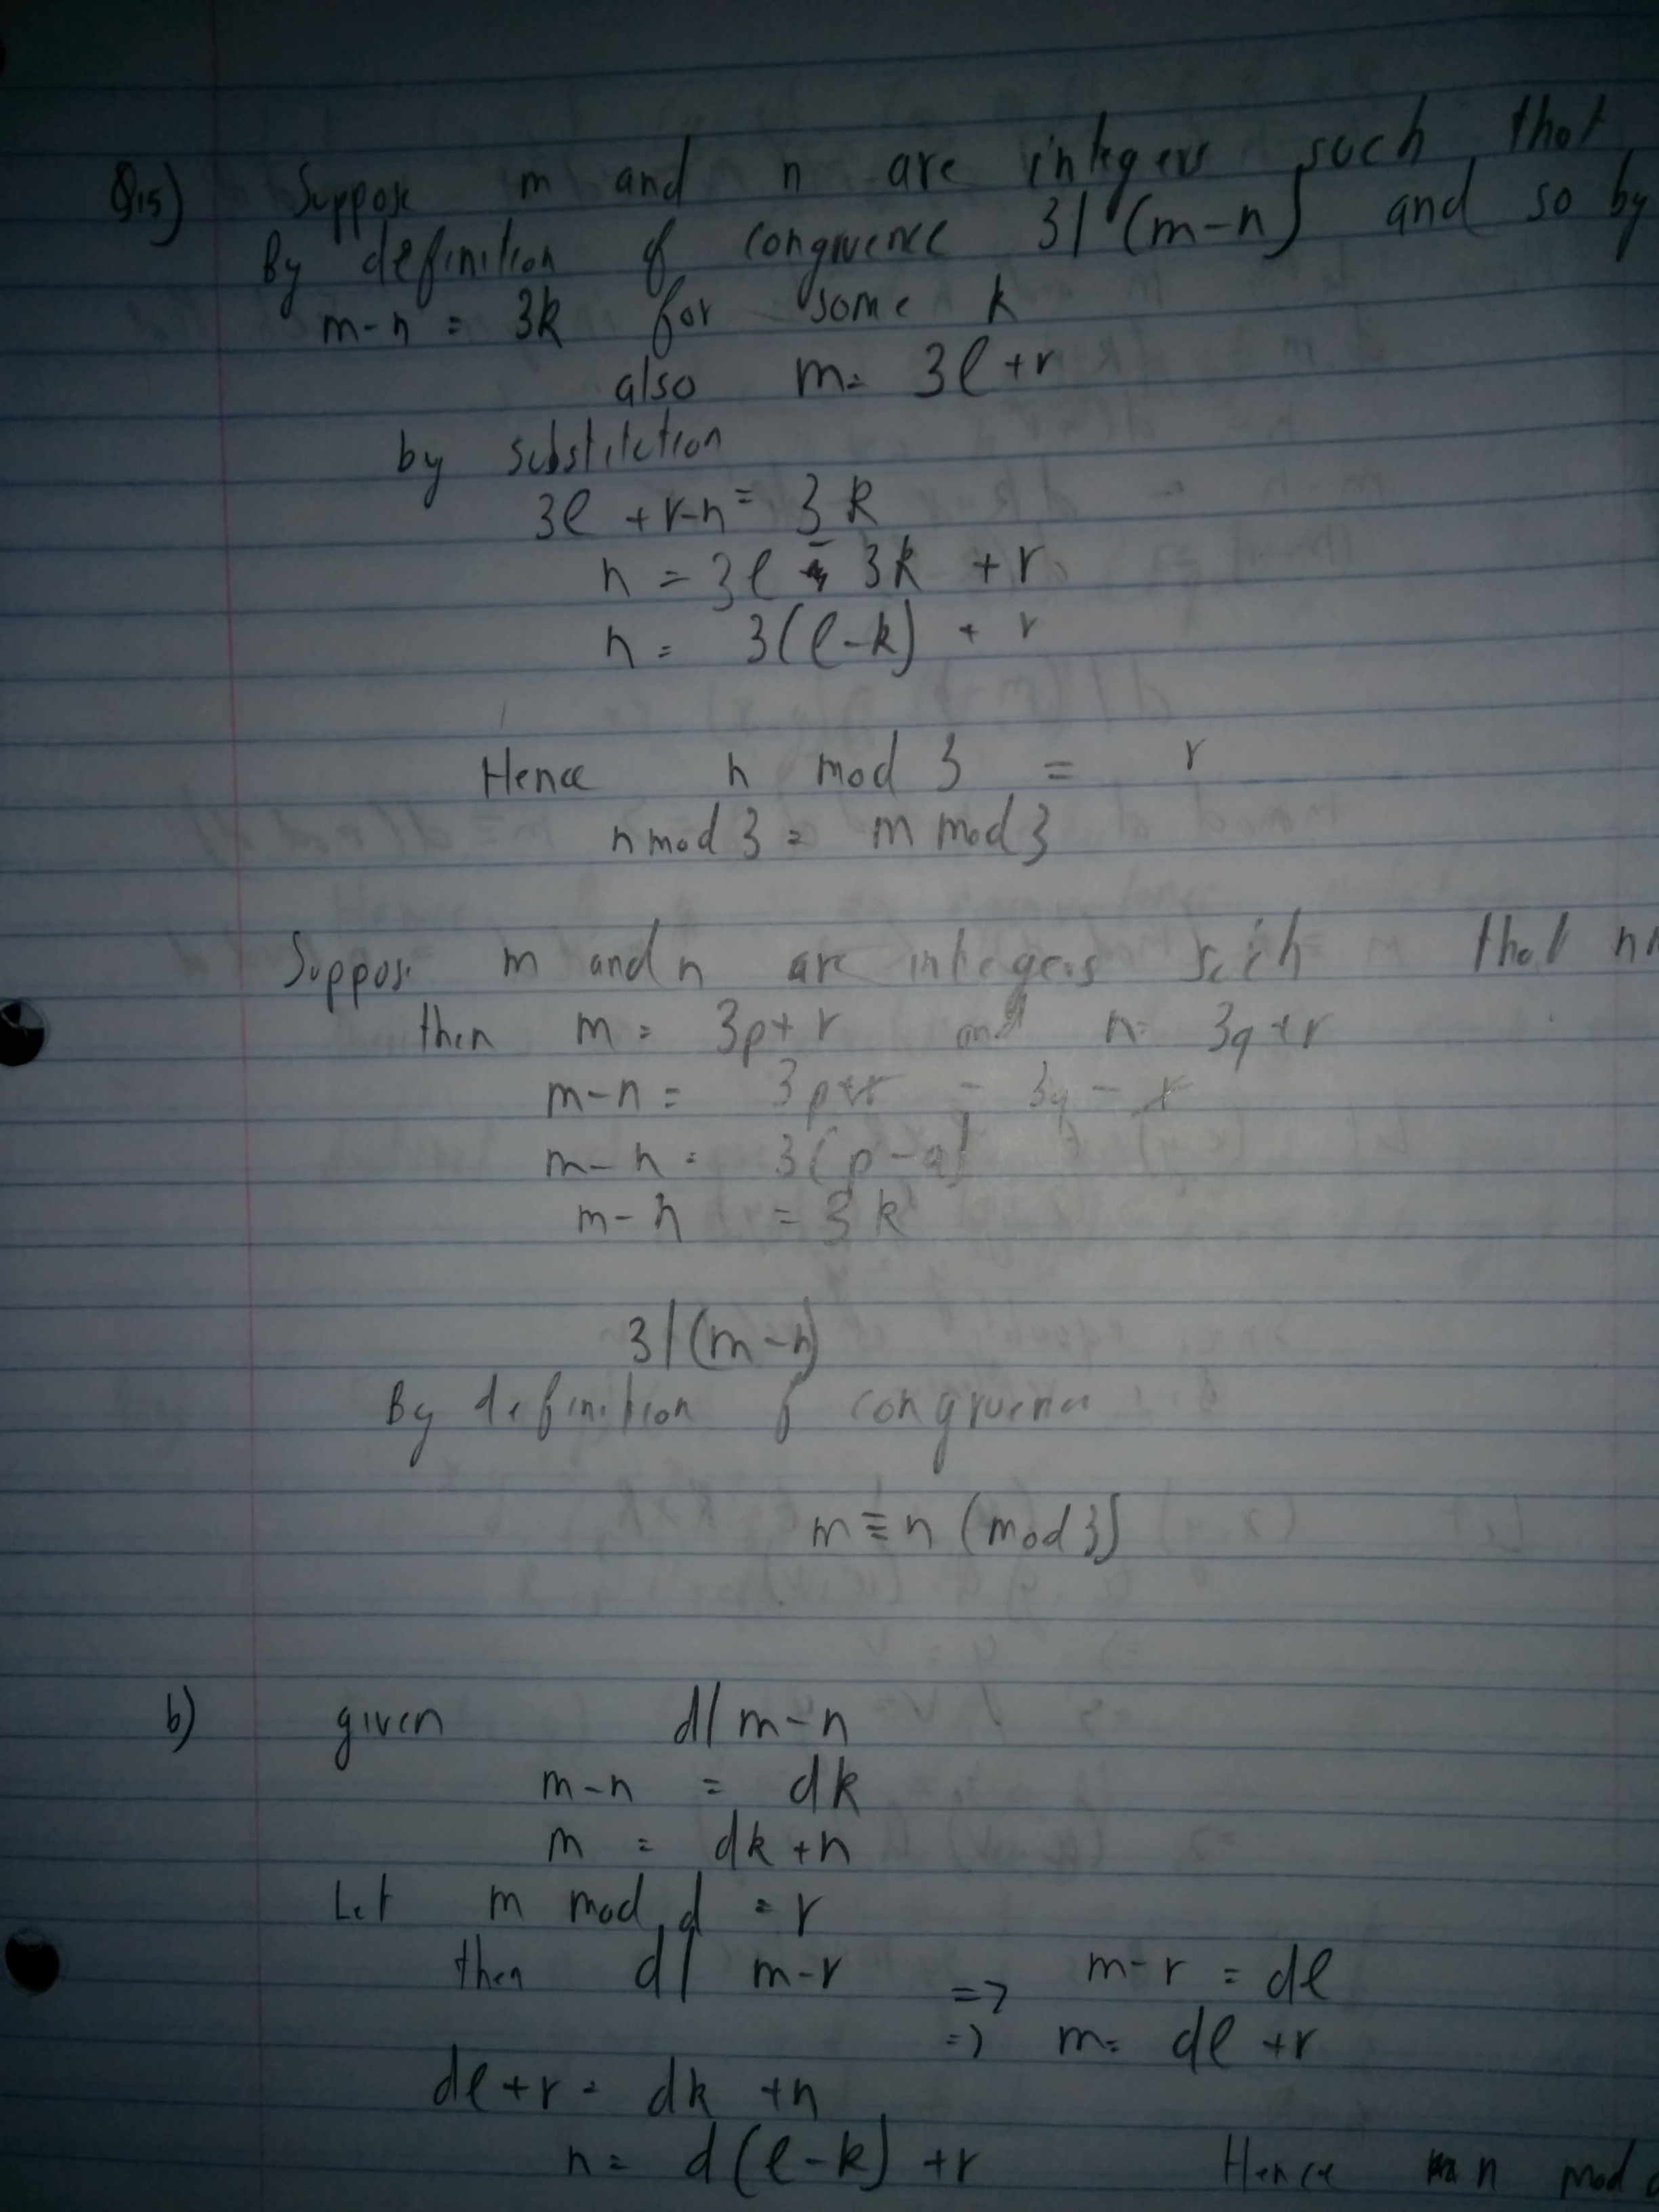 Q15) Suppose m and n are integers such that
By definition of congruence 3|(m-n) and so by
m-n = 3k for some k
also m= 3ℓ+r
by substitution
3ℓ +r-n = 3k
n = 3ℓ - 3k +r
n = 3(ℓ-k) + r
Hence n mod 3 = r
n mod 3 = m mod 3
Suppose m and n are integers such that
then m = 3p+r and n= 3q+r
m-n = 3p+r - 3q - r
m-n = 3(p-q)
m-n = 3k
3|(m-n)
By definition of congruence
m≡n (mod 3)
b) given d|m-n
m-n = dk
m = dk+n
Let m mod d = r
then d| m-r => m-r = dℓ
=> m= dℓ +r
dℓ+r = dk +n
n= d(ℓ-k) +r Hence n mod